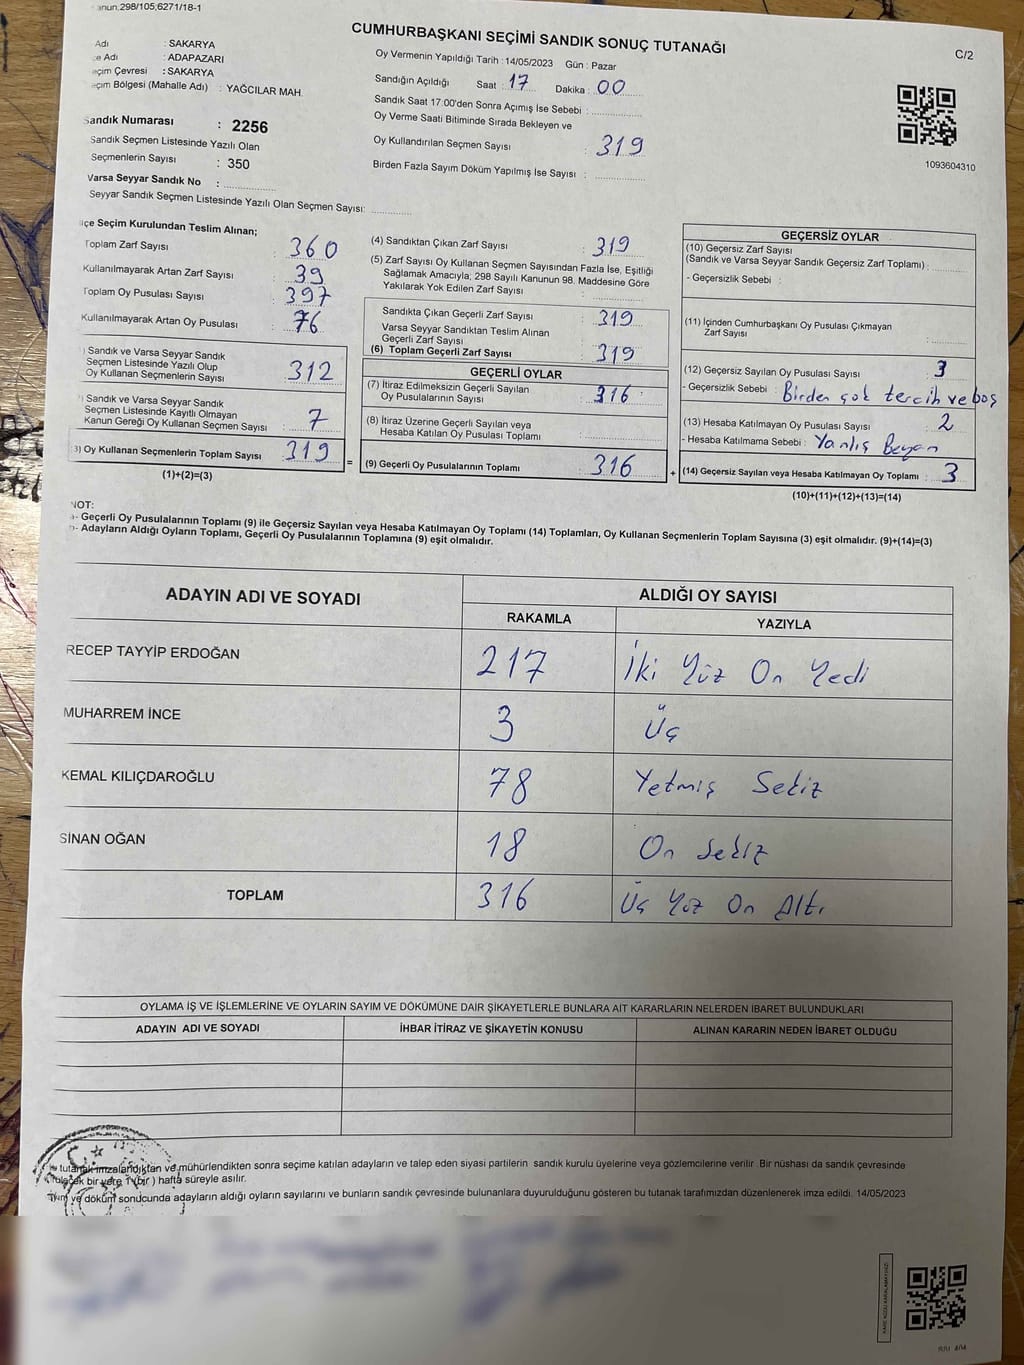 anun;298/105;6271/18-1
CUMHURBAŞKANI SEÇİMİ SANDIK SONUÇ TUTANAĞI
C/2
Adı : SAKARYA
çe Adı : ADAPAZARI
eçim Çevresi : SAKARYA
eçim Bölgesi (Mahalle Adı) : YAĞCILAR MAH.
Oy Vermenin Yapıldığı Tarih : 14/05/2023 Gün : Pazar
Sandığın Açıldığı Saat : 17 Dakika : 00
Sandık Saat 17:00'den Sonra Açımış İse Sebebi :
Oy Verme Saati Bitiminde Sırada Bekleyen ve
Oy Kullandırılan Seçmen Sayısı : 319
Birden Fazla Sayım Döküm Yapılmış İse Sayısı :
1093604310
Sandık Numarası : 2256
Sandık Seçmen Listesinde Yazılı Olan
Seçmenlerin Sayısı : 350
Varsa Seyyar Sandık No :
Seyyar Sandık Seçmen Listesinde Yazılı Olan Seçmen Sayısı:
lçe Seçim Kurulundan Teslim Alınan;
Toplam Zarf Sayısı : 360
Kullanılmayarak Artan Zarf Sayısı : 39
Toplam Oy Pusulası Sayısı : 397
Kullanılmayarak Artan Oy Pusulası : 76
) Sandık ve Varsa Seyyar Sandık
Seçmen Listesinde Yazılı Olup
Oy Kullanan Seçmenlerin Sayısı : 312
) Sandık ve Varsa Seyyar Sandık
Seçmen Listesinde Kayıtlı Olmayan
Kanun Gereği Oy Kullanan Seçmen Sayısı : 7
3) Oy Kullanan Seçmenlerin Toplam Sayısı : 319
(1)+(2)=(3)
(4) Sandıktan Çıkan Zarf Sayısı : 319
(5) Zarf Sayısı Oy Kullanan Seçmen Sayısından Fazla İse, Eşitliği
Sağlamak Amacıyla; 298 Sayılı Kanunun 98. Maddesine Göre
Yakılarak Yok Edilen Zarf Sayısı :
Sandıkta Çıkan Geçerli Zarf Sayısı : 319
Varsa Seyyar Sandıktan Teslim Alınan
Geçerli Zarf Sayısı :
(6) Toplam Geçerli Zarf Sayısı : 319
GEÇERLİ OYLAR
(7) İtiraz Edilmeksizin Geçerli Sayılan
Oy Pusulalarının Sayısı : 316
(8) İtiraz Üzerine Geçerli Sayılan veya
Hesaba Katılan Oy Pusulası Toplamı :
= (9) Geçerli Oy Pusulalarının Toplamı : 316 +
GEÇERSİZ OYLAR
(10) Geçersiz Zarf Sayısı
(Sandık ve Varsa Seyyar Sandık Geçersiz Zarf Toplamı) :
- Geçersizlik Sebebi :
(11) İçinden Cumhurbaşkanı Oy Pusulası Çıkmayan
Zarf Sayısı :
(12) Geçersiz Sayılan Oy Pusulası Sayısı : 3
- Geçersizlik Sebebi : Birden çok tercih ve boş
(13) Hesaba Katılmayan Oy Pusulası Sayısı : 2
- Hesaba Katılmama Sebebi : Yanlış Beyan
(14) Geçersiz Sayılan veya Hesaba Katılmayan Oy Toplamı : 3
(10)+(11)+(12)+(13)=(14)
NOT:
a- Geçerli Oy Pusulalarının Toplamı (9) ile Geçersiz Sayılan veya Hesaba Katılmayan Oy Toplamı (14) Toplamları, Oy Kullanan Seçmenlerin Toplam Sayısına (3) eşit olmalıdır. (9)+(14)=(3)
b- Adayların Aldığı Oyların Toplamı, Geçerli Oy Pusulalarının Toplamına (9) eşit olmalıdır.
ADAYIN ADI VE SOYADI ALDIĞI OY SAYISI
RAKAMLA YAZIYLA
RECEP TAYYİP ERDOĞAN 217 İki Yüz On Yedi
MUHARREM İNCE 3 Üç
KEMAL KILIÇDAROĞLU 78 Yetmiş Sekiz
SİNAN OĞAN 18 On Sekiz
TOPLAM 316 Üç Yüz On Altı
OYLAMA İŞ VE İŞLEMLERİNE VE OYLARIN SAYIM VE DÖKÜMÜNE DAİR ŞİKAYETLERLE BUNLARA AİT KARARLARIN NELERDEN İBARET BULUNDUKLARI
ADAYIN ADI VE SOYADI İHBAR İTİRAZ VE ŞİKAYETİN KONUSU ALINAN KARARIN NEDEN İBARET OLDUĞU
tutanak imzalandıktan ve mühürlendikten sonra seçime katılan adayların ve talep eden siyasi partilerin sandık kurulu üyelerine veya gözlemcilerine verilir. Bir nüshası da sandık çevresinde
bir yere 1 (bir) hafta süreyle asılır.
ve döküm sonucunda adayların aldığı oyların sayılarını ve bunların sandık çevresinde bulunanlara duyurulduğunu gösteren bu tutanak tarafımızdan düzenlenerek imza edildi. 14/05/2023